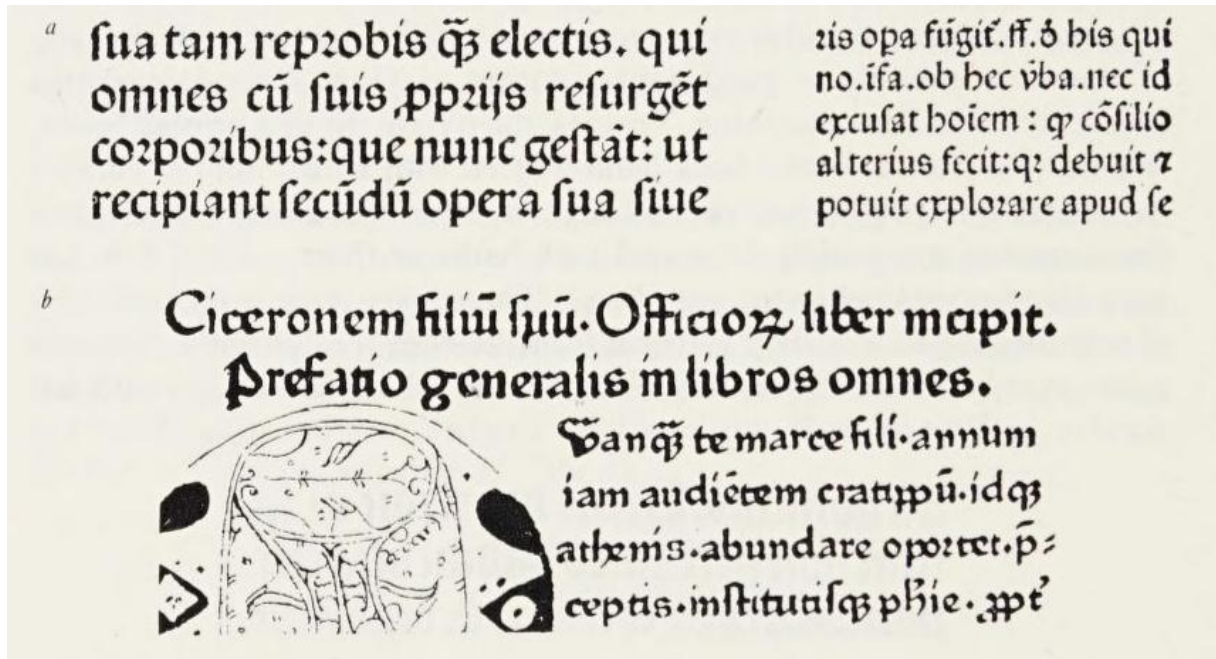 a
sua tam reprobis qꝫ electis. qui
omnes cū suis ꝓprijs resurgēt
corporibus: que nunc gestāt: ut
recipiant secūdū opera sua siue
ris opa fūgit᷑.ff.ð his qui
no.īfa.ob hec v̇ba.nec id
excusat hoīem : ꝙ cōsilio
alterius fecit:qꝛ debuit ⁊
potuit explorare apud se
b
Ciceronem filiū suū. Officioꝝ liber incipit.
Prefatio generalis in libros omnes.
Vanqꝫ te marce fili.annum
iam audiētem cratippū.idqꝫ
athenis.abundare oportet.p̄⸗
ceptis.institutisqꝫ phīe.